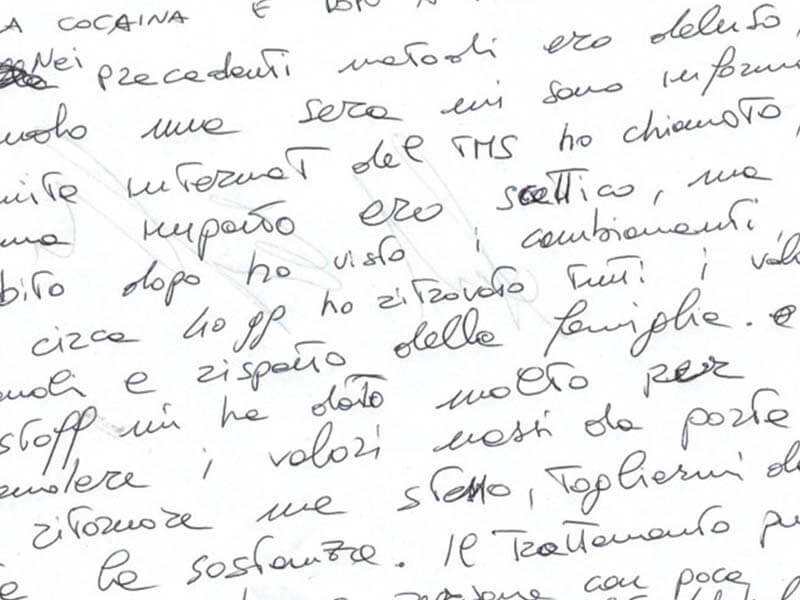 LA COCAINA E DOPO
Nei precedenti metodi ero deluso,
una sera mi sono inform
mite internet del TMS ho chiamato,
imparto ero scettico, ma
bito dopo ho visto i cambiamenti,
circa 40 gg ho ritrovato tutti i valo
e rispetto della famiglia. e
staff mi ha dato molto per
i valori messi da parte
ritornare me stesso, togliermi d
la sostanza. Il trattamento pu
con poca